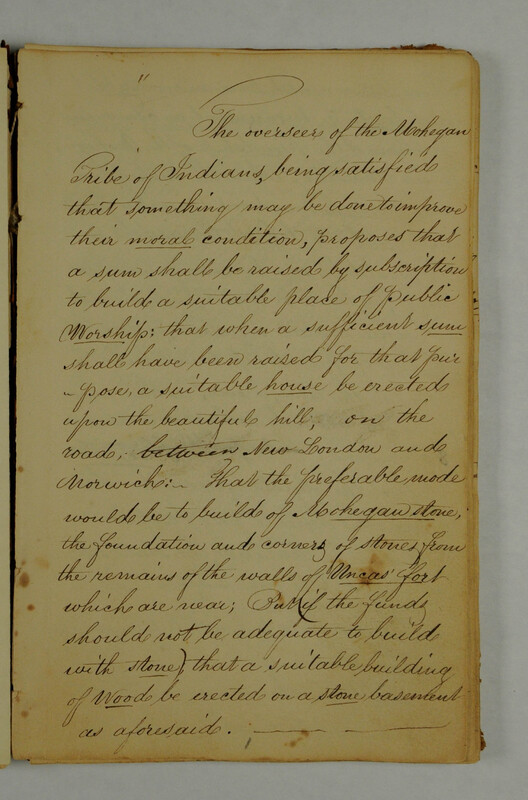 "
The overseer of the Mohegan
Tribe of Indians, being satisfied
that something may be done to improve
their moral condition, proposes that
a sum shall be raised by subscription
to build a suitable place of public
Worship; that when a sufficient sum
shall have been raised for that pur
- pose, a suitable house be erected
upon the beautiful hill, on the
road, between New London and
Norwich:- That the preferable mode
would be to build of Mohegan stone,
the foundation and corners of stones from
the remains of the walls of Uncas' fort
which are near; But (if the funds
should not be adequate to build
with stone) that a suitable building
of Wood be erected on a stone basement
as aforesaid.